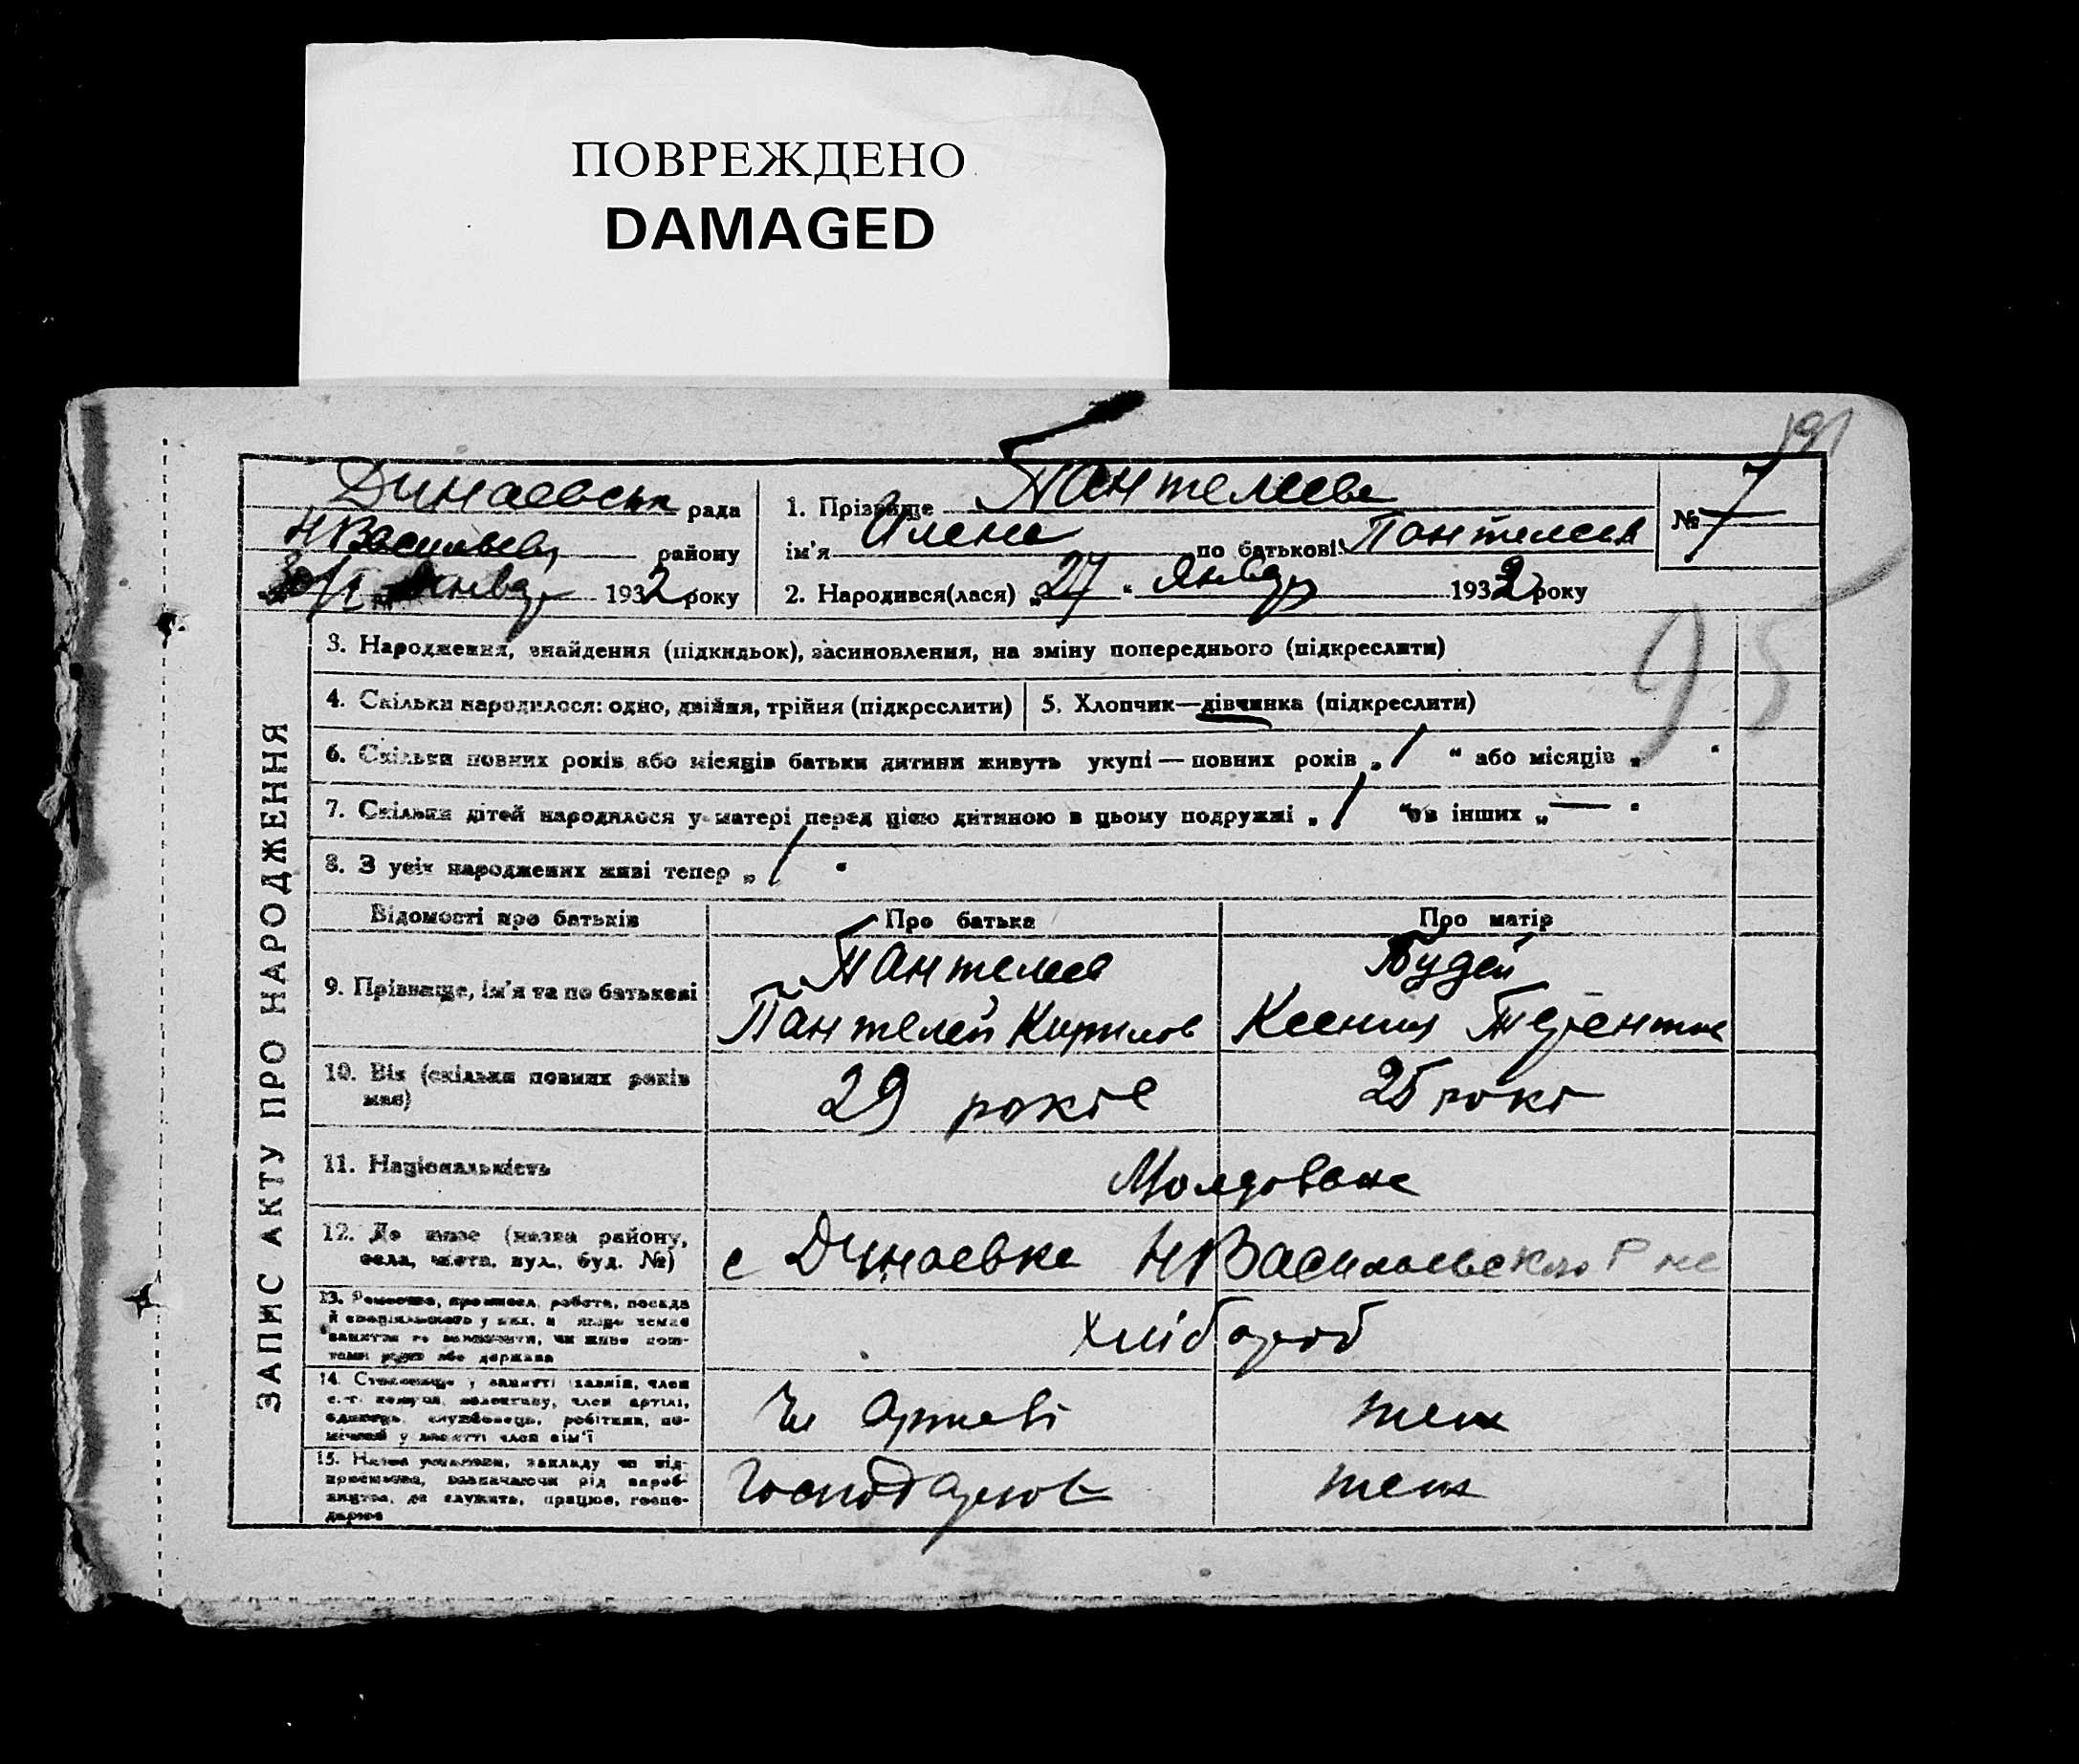 ПОВРЕЖДЕНО
DAMAGED
191
Динаевськ рада
НВасильевс району
30/I Январ 1932 року
1. Прізвище Пантелеева
ім'я Илена по батькові Пантелеев
2. Народився(лася) „27 " Январ 1932 року
№ 7
95
ЗАПИС АКТУ ПРО НАРОДЖЕННЯ
3. Народження, знайдення (підкидьок), засиновлення, на зміну попереднього (підкреслити)
4. Скільки народилося: одно, двійня, трійня (підкреслити)
5. Хлопчик—дівчинка (підкреслити)
6. Скільки повних років або місяців батьки дитини живуть укупі — повних років „ 1 " або місяців „ "
7. Скільки дітей народилося у матері перед цією дитиною в цьому подружжі „ 1 " в інших „ — "
8. З усіх народжених живі тепер „ 1 "
Відомості про батьків
Про батька
Про матір
9. Прізвище, ім'я та по батькові
Пантелеев
Пантелей Кирилов
Будей
Ксения Терентие
10. Вік (скільки повних років має)
29 років
25 рокі
11. Національність
Молдоване
12. Де живе (назва району,
села, міста, вул., буд. №)
с Динаевка НВасильевского Р не
13. Ремество, промисел, робота, посада
й спеціяльність у них, а якщо немає
заняття то зазначити, чи живе кош-
тами рідні або держави
хлібороб
14. Становище у занятті хазяїн, член
с.-г. комуни, колективу, член артілі,
одинець, службовець, робітник, по-
мічний у занятті член сім'ї
Чл Артеві
теж
15. Назва установи, закладу чи під-
приємства, зазначаючи рід вироб-
ництва, де служить, працює, госпо-
дарює
Господарюв
теж